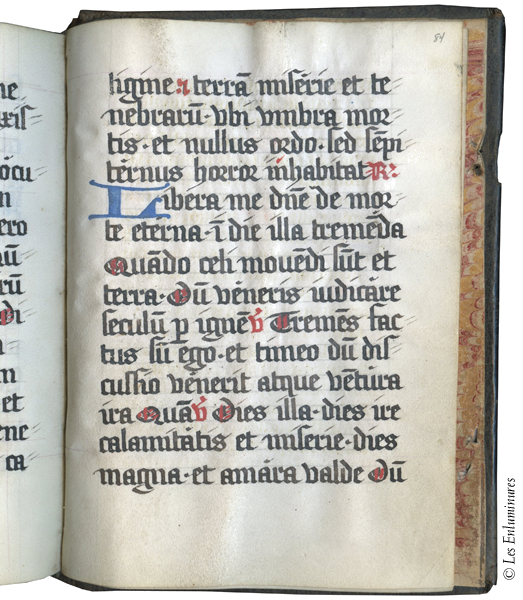 84
ligine ⁊ terrā miserie et te
nebrarū· vbi vmbra mor
tis· et nullus ordo· sed sēpi
ternus horror inhabitat R:
Libera me dn̄e de mor
te eterna· ī die illa tremēda
Quādo celi mouēdi sūt et
terra· Dū veneris iudicare
seculū p ignē v̄ Tremēs fac
tus sū ego· et timeo dū dis
cussio venerit atque vētura
ira Quā v̄ Dies illa· dies ire
calamitatis et miserie· dies
magna· et amara valde Dū
ne
xris
ocu
n
ero
rū
Di
m
et
ene
ca
© Les Enluminures